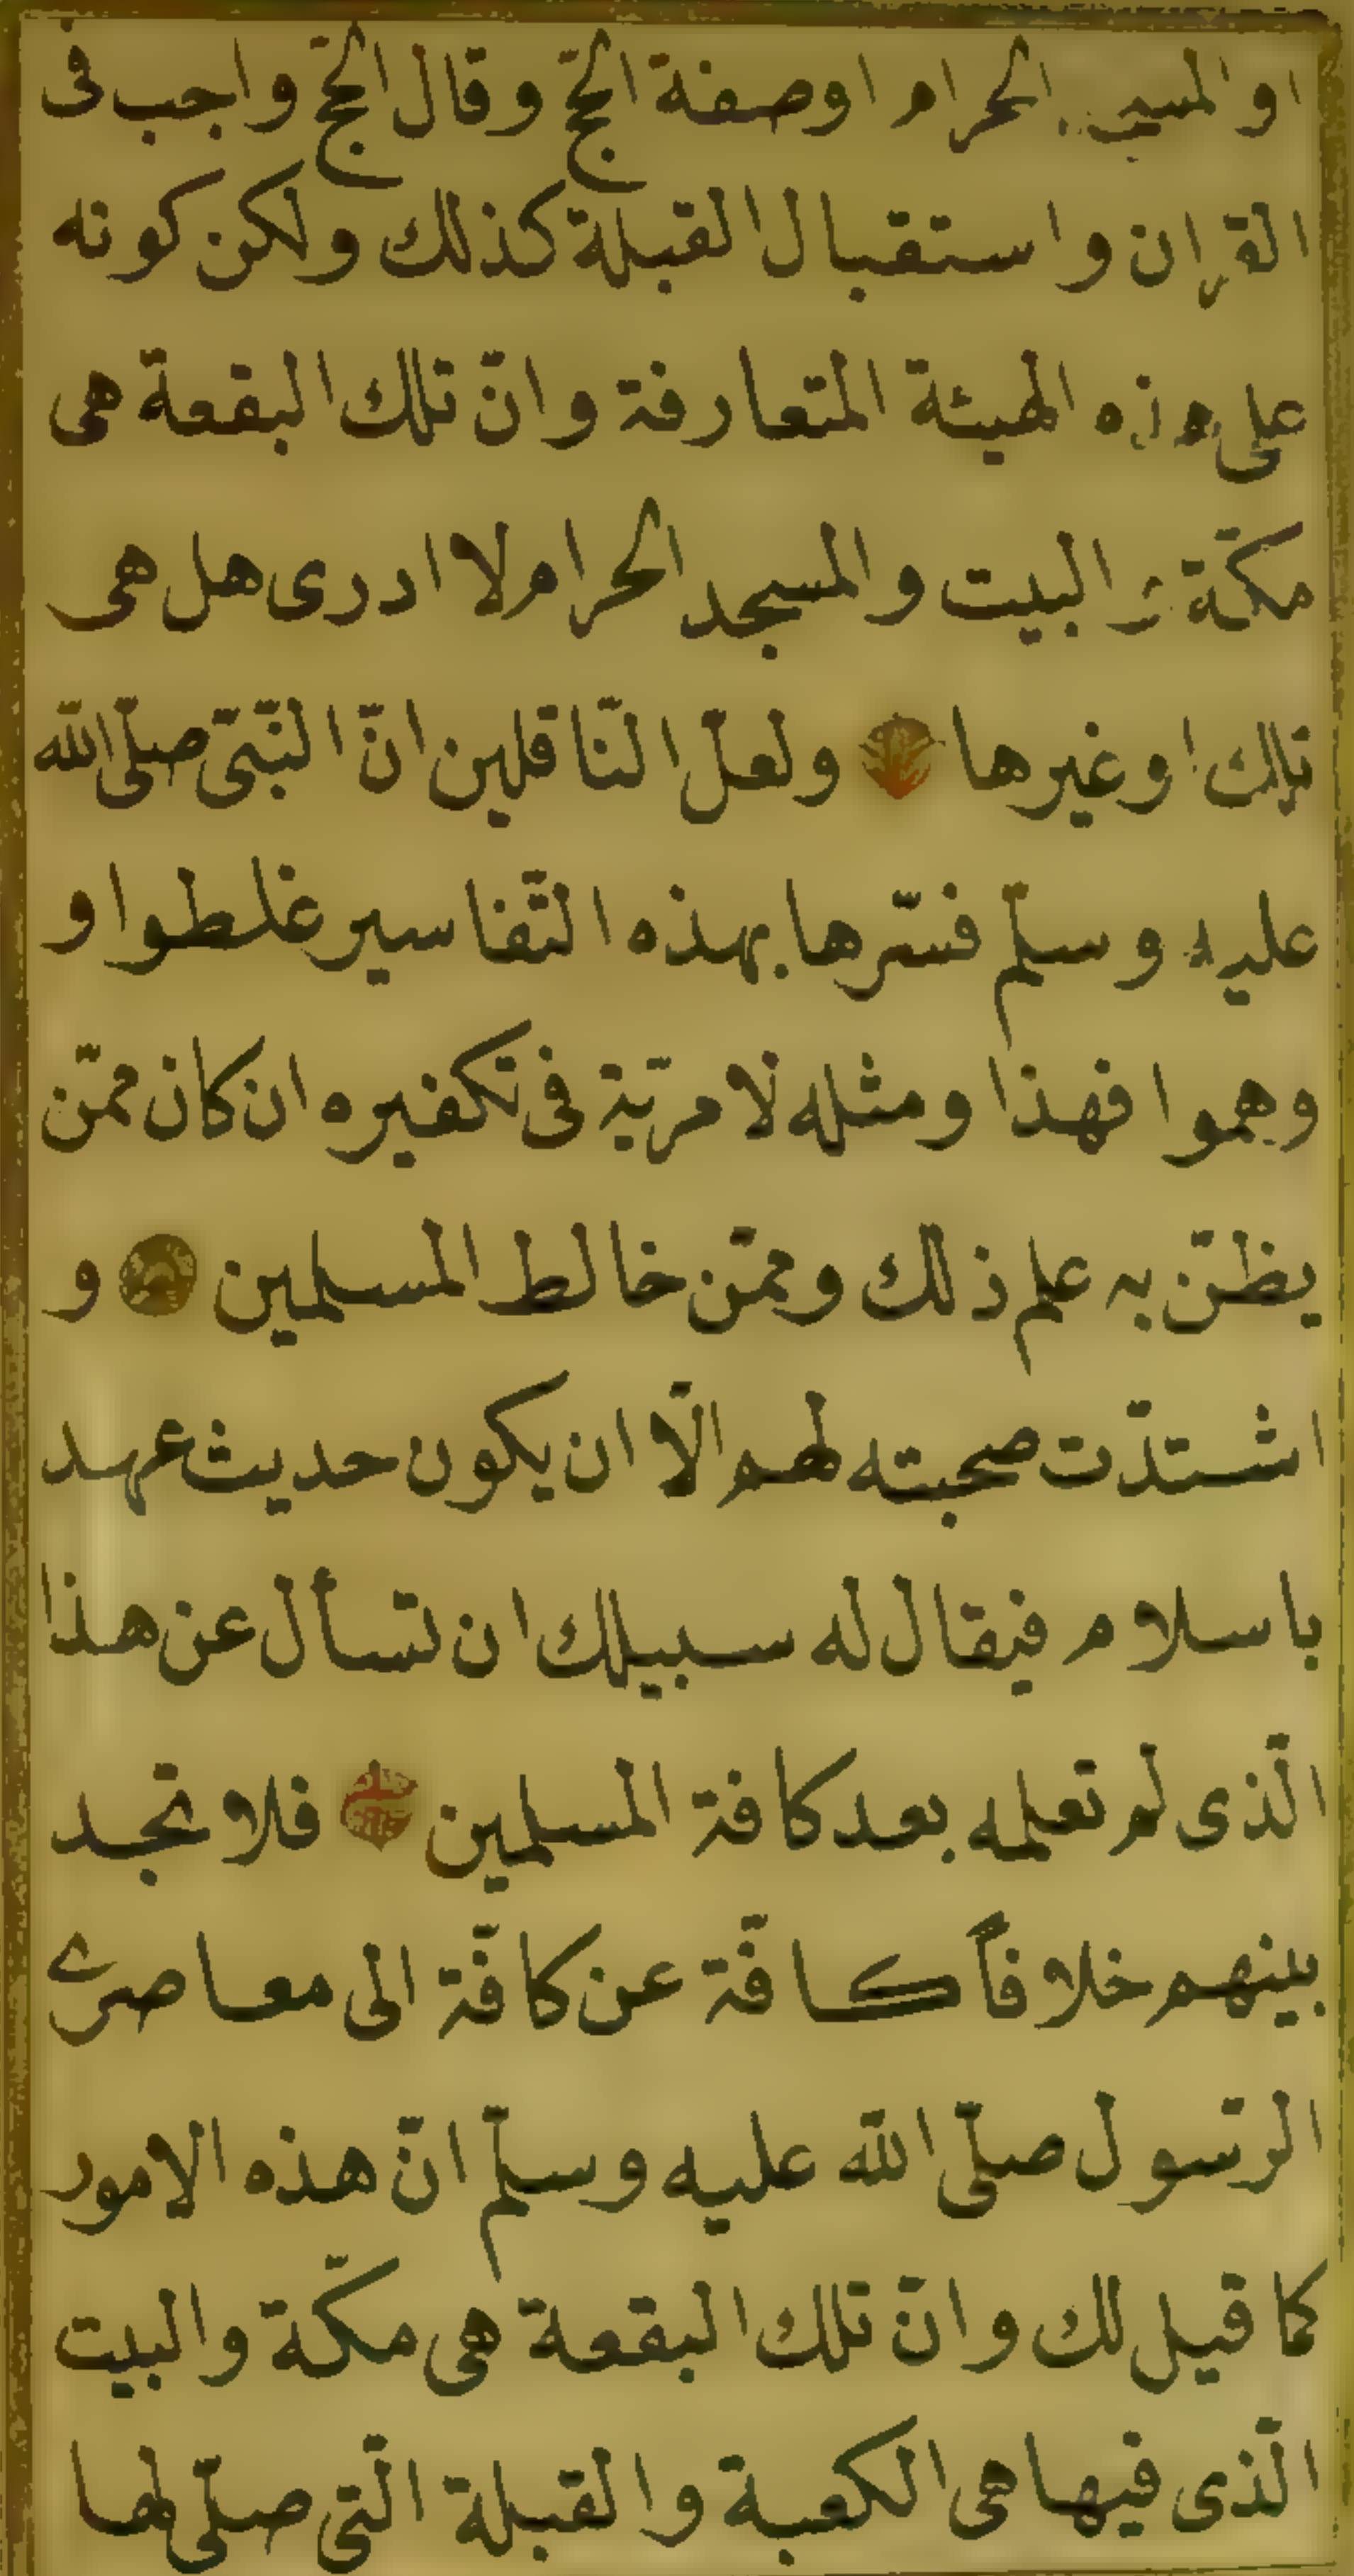 او المسجد الحرام او صفة الحجّ وقال الحجّ واجب فى
القران واستقبال القبلة كذلك ولكن كونه
على هذه الهيئة المتعارفة وانّ تلك البقعة هى
مكّة والبيت والمسجد الحرام لا ادرى هل هى
تلك او غيرها ولعلّ النّاقلين انّ النّبىّ صلّى الله
عليه وسلّم فسّرها بهذه التّفاسير غلطوا و
وهموا فهذا ومثله لا مريّة فى تكفيره ان كان ممّن
يظنّ به علم ذلك وممّن خالط المسلمين و
اشتدّت صحبته لهم الّا ان يكون حديث عهد
باسلام فيقال له سبيلك ان تسأل عن هذا
الّذى لم تعلمه بعد كافة المسلمين فلا تجد
بينهم خلافاً كافّة عن كافّة الى معاصرى
الرّسول صلّى الله عليه وسلّم انّ هذه الامور
كما قيل لك وانّ تلك البقعة هى مكّة والبيت
الّذى فيها هى الكعبة والقبلة الّتى صلّى لها